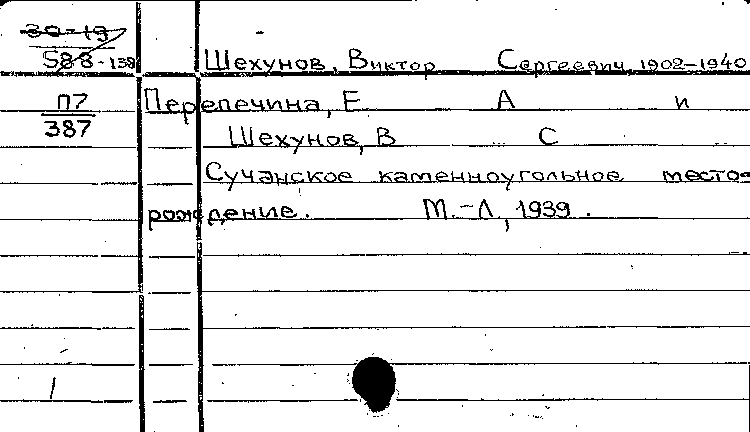 30-19
588-138 Шехунов, Виктор Сергеевич, 1902-1940
П7 Перепечина, Е А и
387 Шехунов, В С
Сучанское каменноугольное место-
рождение. М.-Л., 1939.